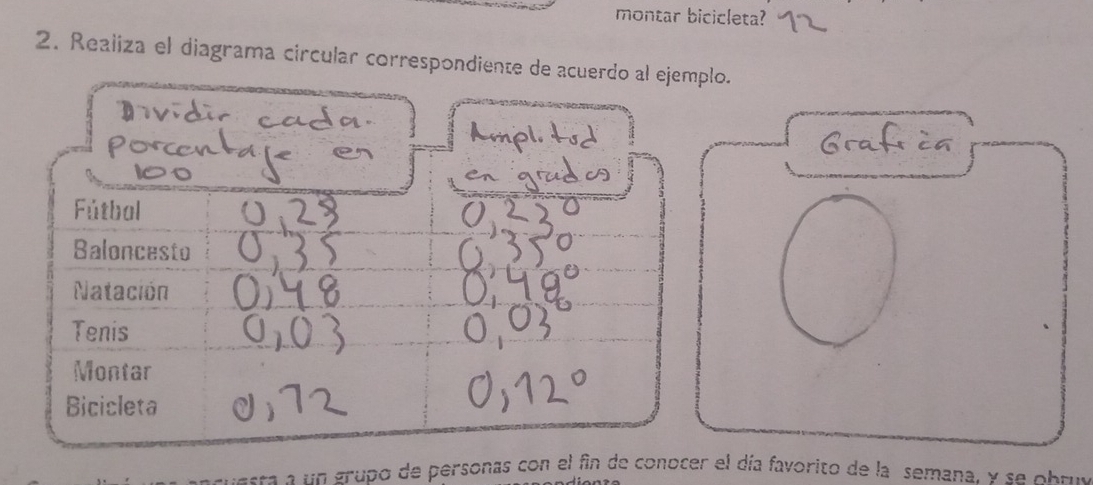 montar bicicleta? 12
2. Realiza el diagrama circular correspondiente de acuerdo al ejemplo.
Dividir cada
porcentaje en
100
Amplitud
en grados
Grafica
Fútbol 0,23 0,23°
Baloncesto 0,35 0,35°
Natación 0,48 0,48°
Tenis 0,03 0,03°
Montar
Bicicleta 0,12 0,12°
encuesta a un grupo de personas con el fin de conocer el día favorito de la semana, y se obtuv